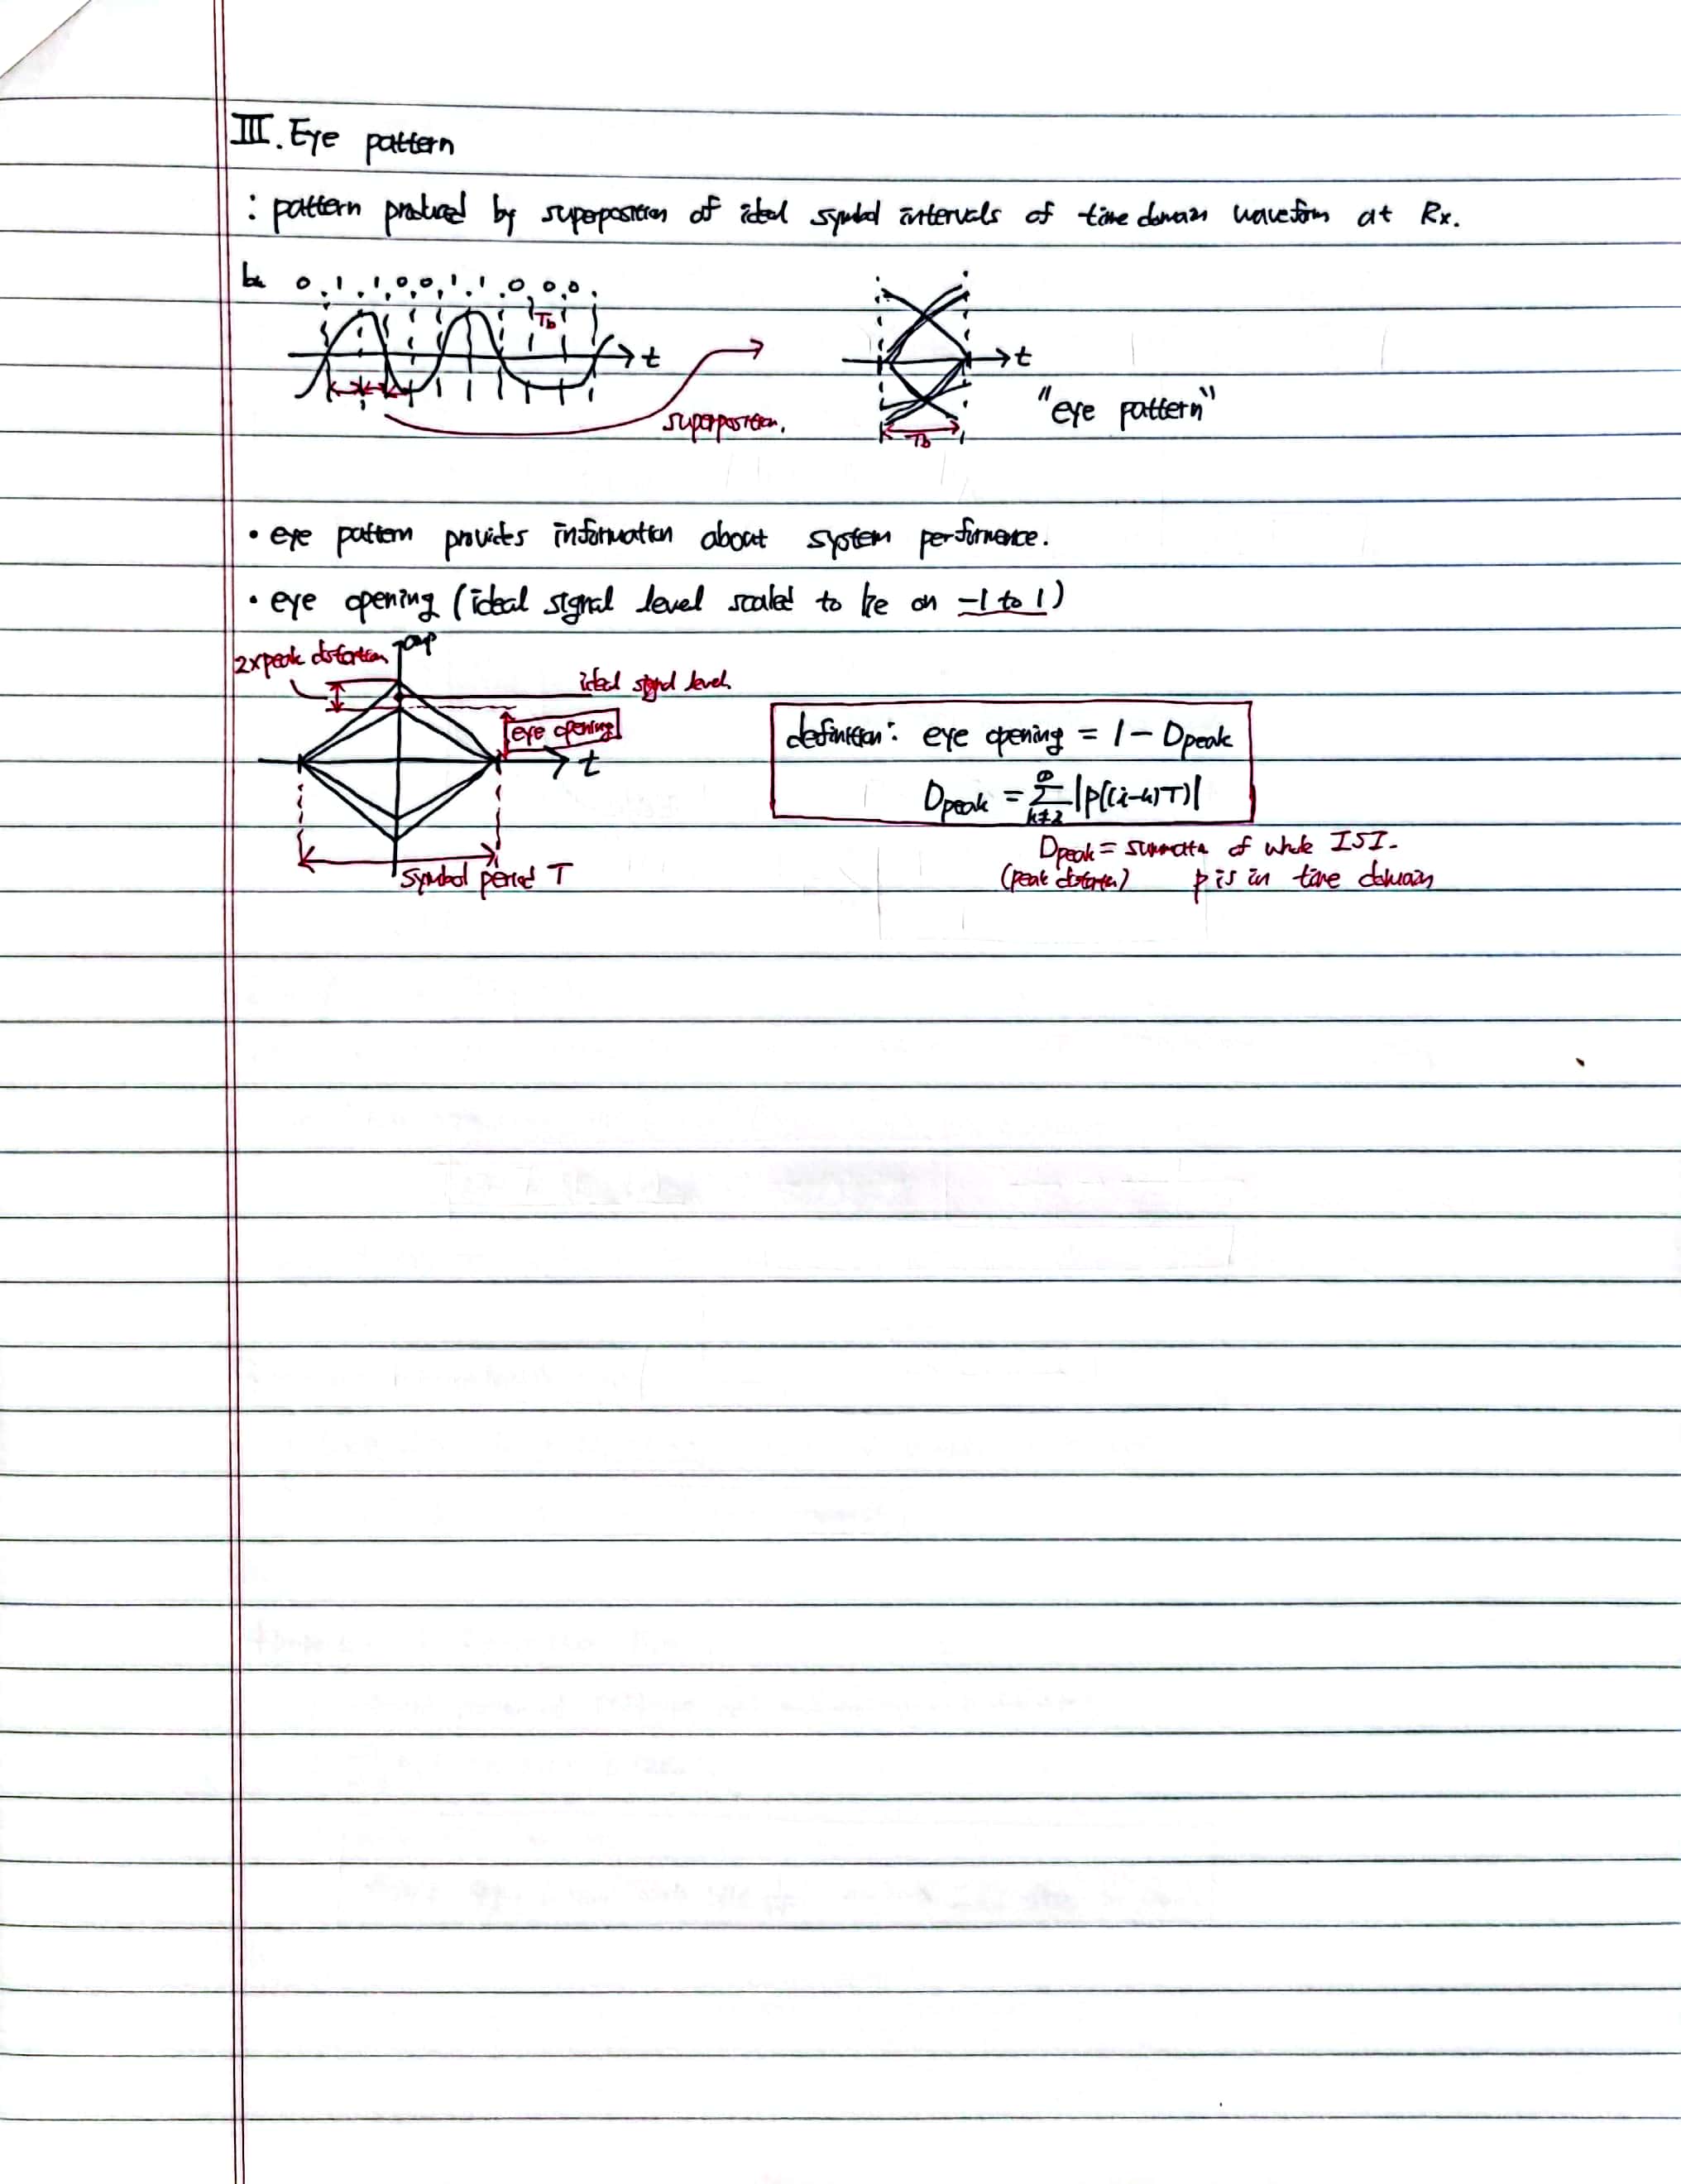 III. Eye pattern
: pattern produced by superposition of ideal symbol intervals of time domain waveform at Rx.
bk 0 1 1 0 0 1 1 0 0 0
Tb
t
t
superposition.
"eye pattern"
Tb
• eye pattern provides information about system performance.
• eye opening (ideal signal level scaled to be on -1 to 1)
amp
2×peak distortion
ideal signal level
eye opening
t
symbol period T
definition: eye opening = 1 - Dpeak
Dpeak = ∞ Σ k≠i |p((i-k)T)|
Dpeak = summation of whole ISI.
(peak distortion) p is in time domain